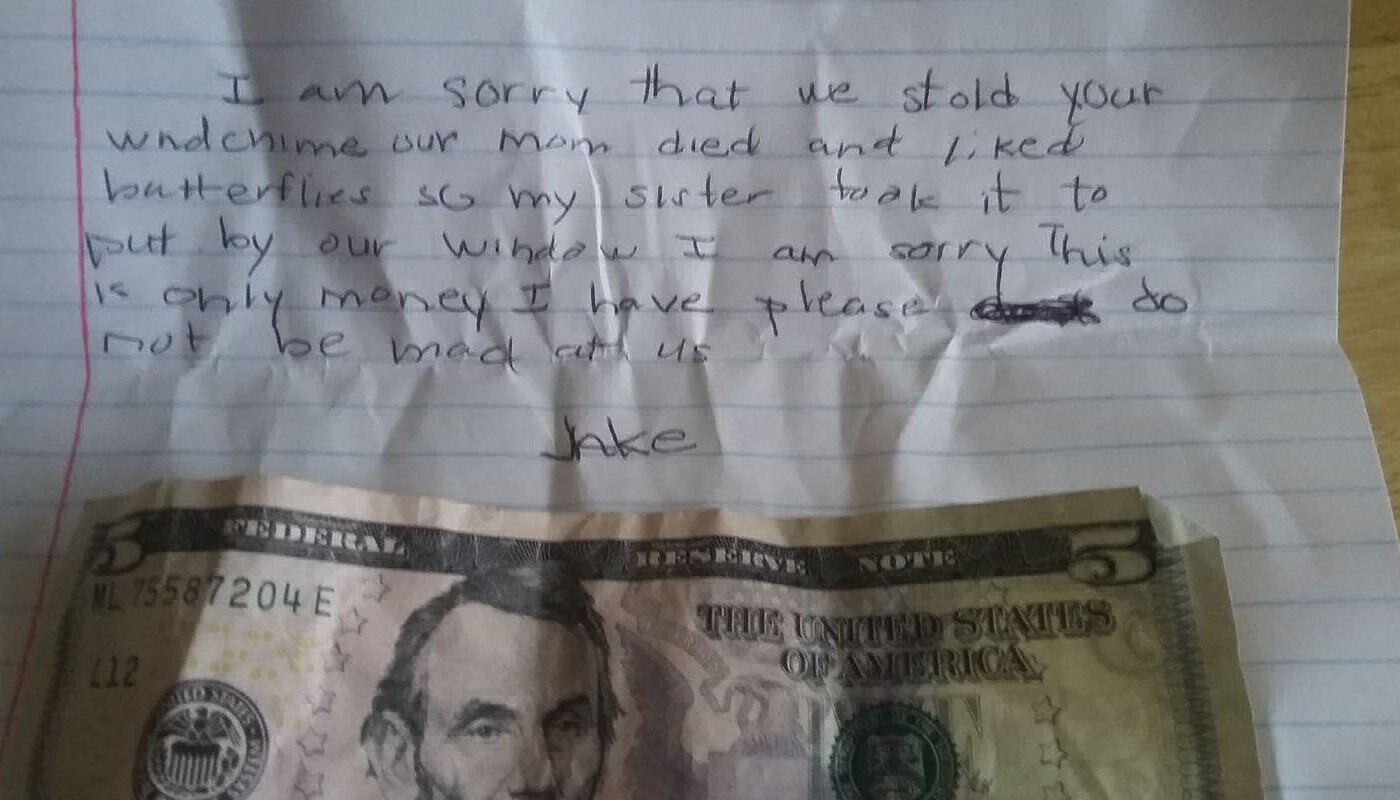 I am sorry that we stold your
wndchime our mom died and liked
butterflies so my sister took it to
put by our window I am sorry This
is only money I have please do
not be mad at us
Jake
FEDERAL RESERVE NOTE
5 5
ML 75587204 E
THE UNITED STATES
OF AMERICA
L12